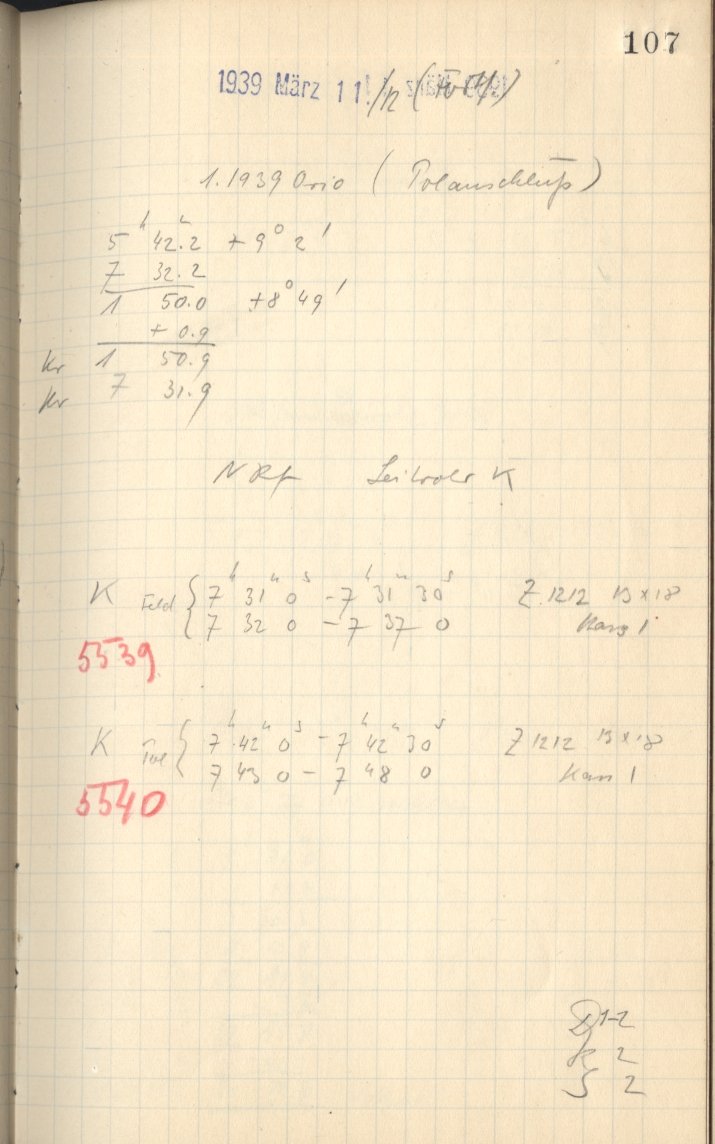 107
1939 März 11./12
1.1939 Orio (Polanschluß)
5ʰ 42.2ᵐ +9° 2'
7 32.2
1 50.0 +8° 49'
+ 0.9
Kr 1 50.9
Kr 7 31.9
K
K Feld { 7ʰ 31ᵐ 0ˢ - 7ʰ 31ᵐ 30ˢ Z 1212 13 x 18
7 32 0 - 7 37 0 Kass 1
5539
K Pol { 7ʰ 42ᵐ 0ˢ - 7ʰ 42ᵐ 30ˢ Z 1212 13 x 18
7 43 0 - 7 48 0 Kass 1
5540
D 1-2
R 2
S 2